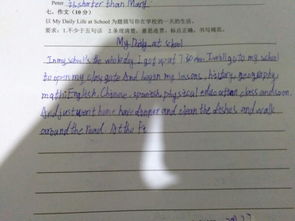 Peter is shorter than Mary.
七、作文(10分)
以 My Daily Life at School 为题描写你在学校的一天的生活。
要求:1.不少于五句话 2.条理清楚,意思连贯,标点正确,书写规范。
My Daily at school
In my school's the whole day. I got up at 7 to I will go to my school
to open my class gate And began my lessons, history, geography
math English. Chinese, spanish, physical education class and soon.
And just went home have dinner and clean the dishes and walk
around the road. At the